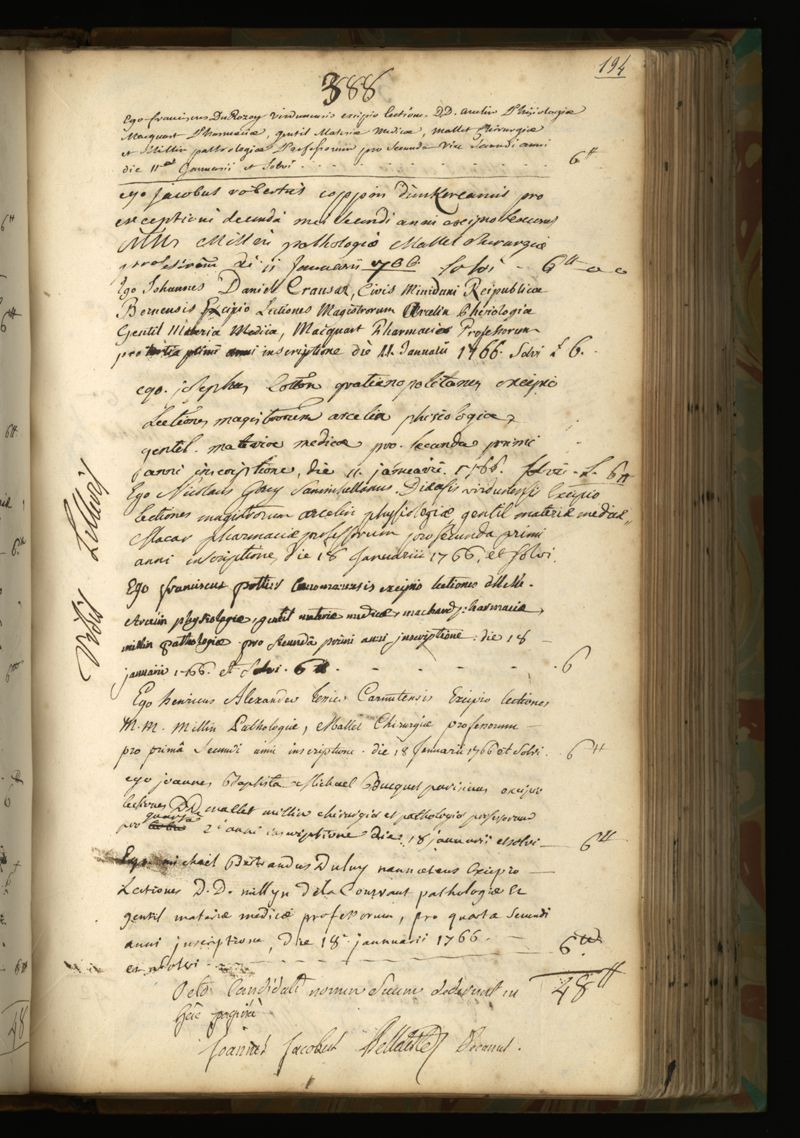 194
388
Ego franciscus DuRozoy virdunensis excipio lectiones DD. arcelin Phisiologiæ
Macquart Pharmaciæ, gentil Materiæ Medicæ, mallet chirurgiæ
et Millin pathologiæ Professorum pro Secunda Vice Secundi anni
die 11a Januarii et Solvi 6tt
ego jacobus robertus coppin dunkercanus pro
exceptioni secunda mei secundi anni excipio lectiones
MMrs Millin pathologiæ Mallet chirurgiæ
professorum die 11 Januarii 1766 Solvi 6tt
Ego Johannes Daniel Crausaz, Civis Miniduni Reipublicæ
Bernensis Excipio Lectiones Magistrorum Arcelin Phisiologiæ
Gentil Materia Medica, Macquart Pharmaciæ Professorum
pro tertia primi anni inscriptione die 11 Januarii 1766. Solvi £ 6.
ego. josephus gratianopolitanus excipio
Lectiones magistrorum arcelin phisiologiæ,
gentil. materiæ medicæ pro. secunda primi
anni inscriptione, die 11. januarii. 1766. Solvi. £. 6tt
Ego Nicolaus Sanmiellanus. Diœcesis virdunensis Excipio
lectiones magistrorum arcelin physiologiæ gentil materiæ medicæ,
Macar pharmaciæ professorum pro secunda primi
anni inscriptione, die 18 Januarii 1766, et solvi.
Ego franciscus pottier Cenomanensis excipio lectiones DMM.
Arcelin physiologiæ, gentil materiæ medicæ, pharmaciæ,
millin pathologiæ pro secunda primi anni inscriptione: die 18
januarii 1766. et Solvi. 6tt 6
Ego henricus Alexander Carnutensis Excipio lectiones
M. M. Millin Pathologiæ, Mallet Chirurgiæ professorum
pro primâ Secundi anni inscriptione. die 18 Januarii 1766 et Solvi. 6tt
ego joannes Baptista Michael Bucquet parisinus excipio
lectiones DD mallet millin chirurgiæ et pathologiæ professorum
pro quarta 2i anni inscriptione die 18 januarii et solvi 6tt
Ego michael Bertrandus Duluy nannetensis Excipio
Lectiones D. D. millyn Dela Courvant pathologiæ &
gentil materiæ medicæ professorum, pro quarta secundi
anni inscriptione, Die 18a januarii 1766. 6tt
et Solvi
Octo Candidati nomen Suum dederunt in 48tt
hâc paginâ
Joannes Jacobus Belleteste Decanus.